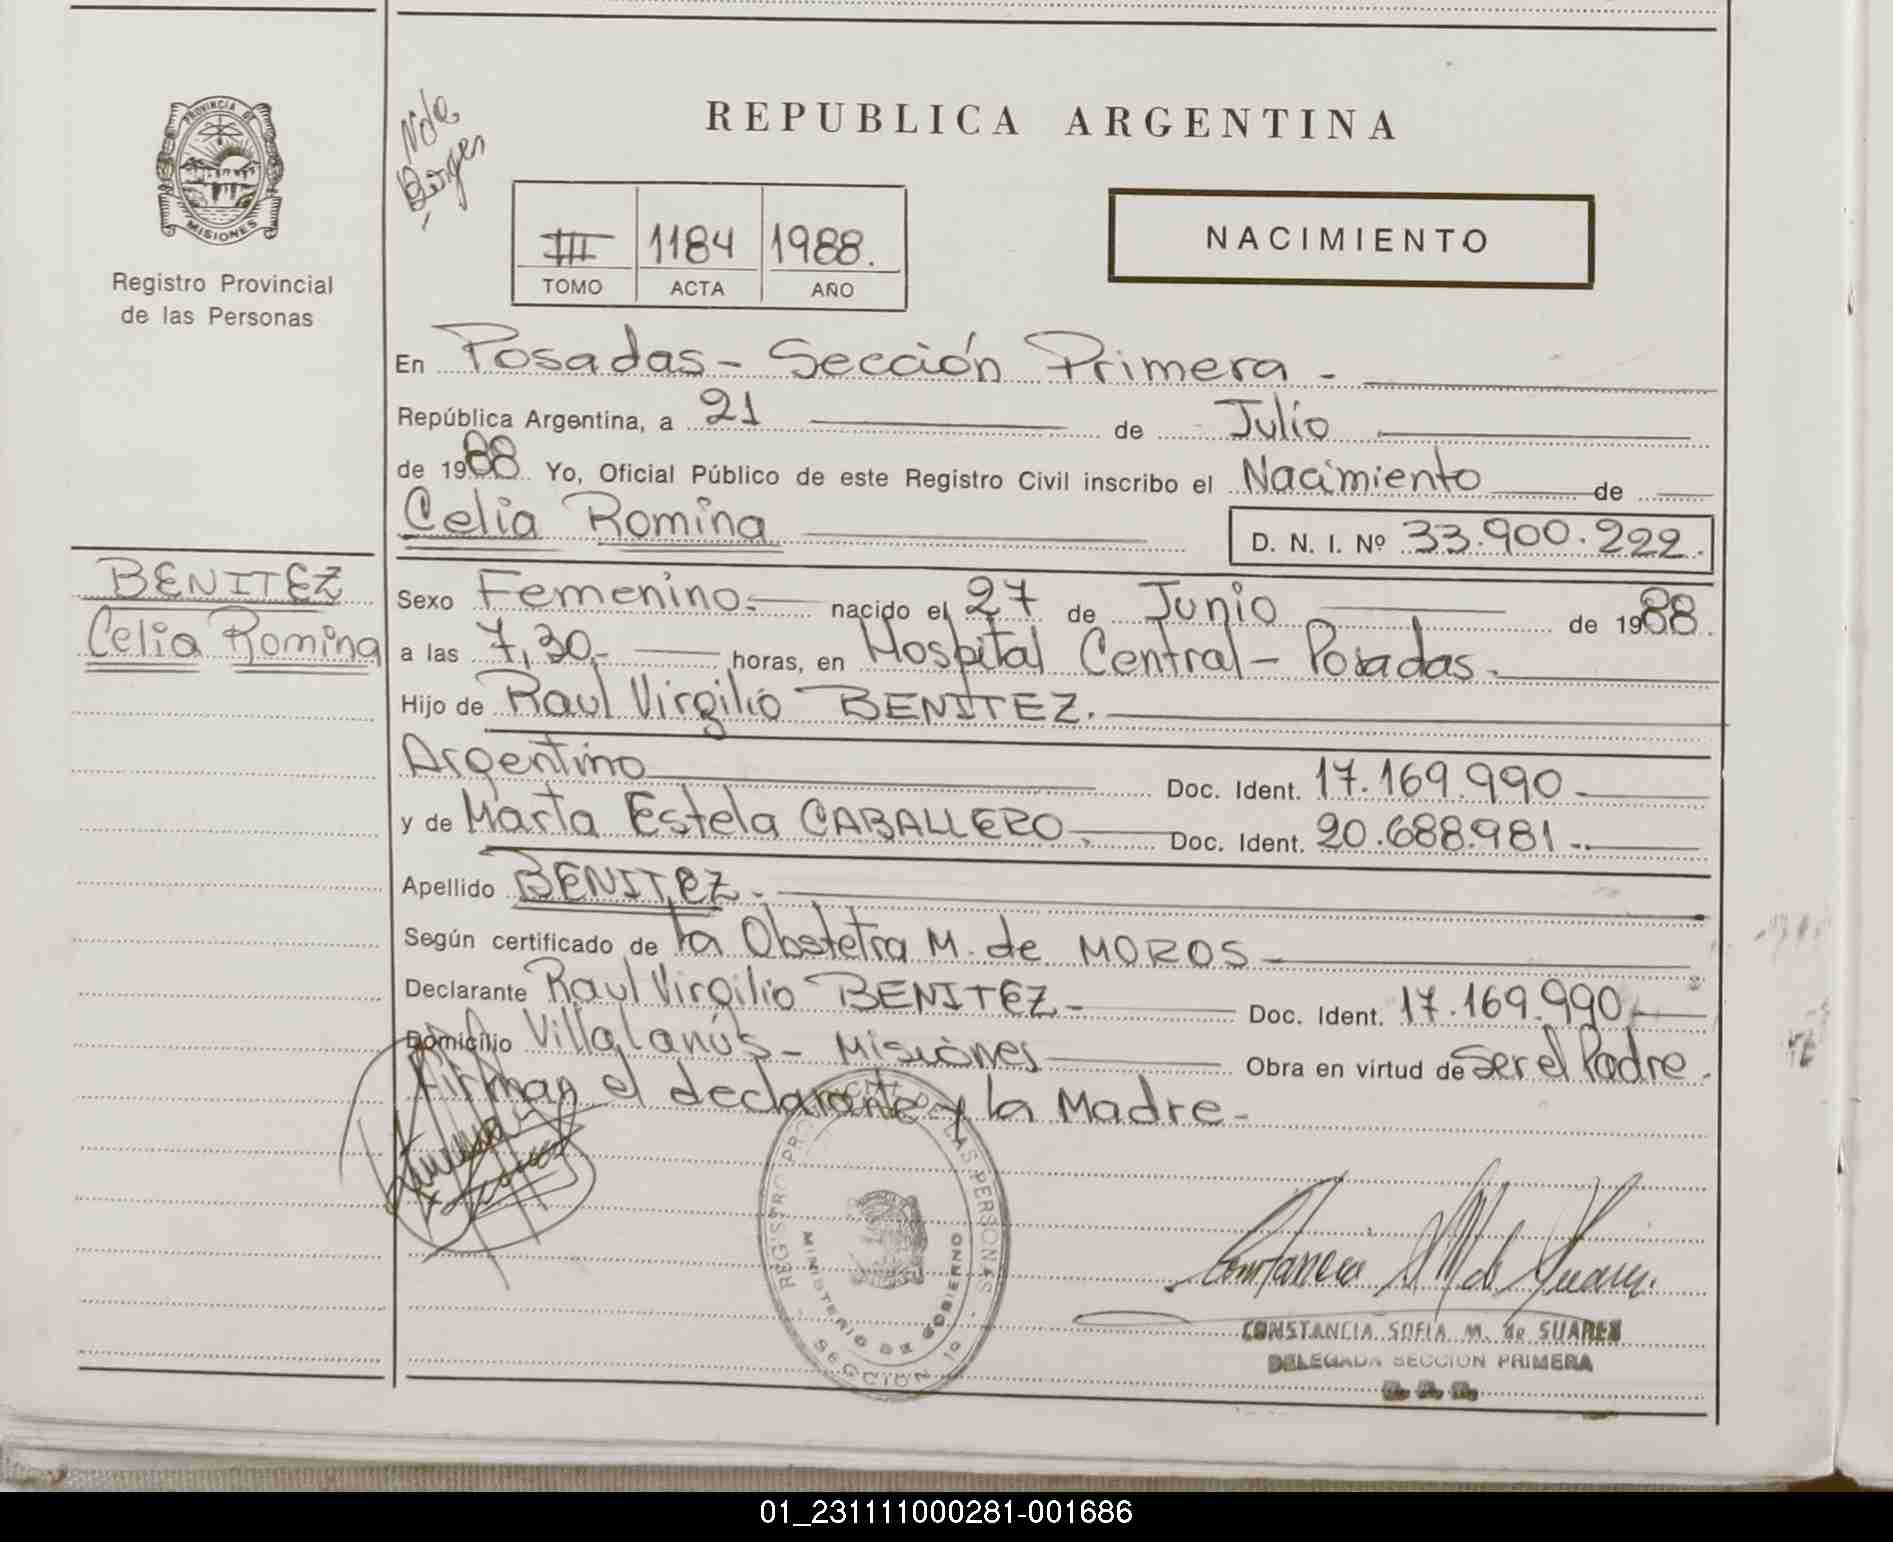 PROVINCIA DE
MISIONES
Registro Provincial
de las Personas
Nda
Borges
REPUBLICA ARGENTINA
III 1184 1988.
TOMO ACTA AÑO
NACIMIENTO
En Posadas - Sección Primera -
República Argentina, a 21 de Julio
de 1988 Yo, Oficial Público de este Registro Civil inscribo el Nacimiento de
Celia Romina
D. N. I. Nº 33.900.222.
BENITEZ
Celia Romina
Sexo Femenino.- nacido el 27 de Junio de 1988.
a las 7,30.- horas, en Hospital Central - Posadas.
Hijo de Raul Virgilio BENITEZ.
Argentino Doc. Ident. 17.169.990-
y de Marta Estela CABALLERO Doc. Ident. 20.688.981-
Apellido BENITEZ.
Según certificado de la Obstetra M. de MOROS-
Declarante Raul Virgilio BENITEZ- Doc. Ident. 17.169.990-
Domicilio Villa Lanús - Misiones Obra en virtud de Ser el Padre.
Firman el declarante y la Madre-
REGISTRO PROVINCIAL DE LAS PERSONAS
MINISTERIO DE GOBIERNO
SECCION 1a
Constancia S M de Suarez.
CONSTANCIA SOFIA M. de SUAREZ
DELEGADA SECCION PRIMERA
01_231111000281-001686